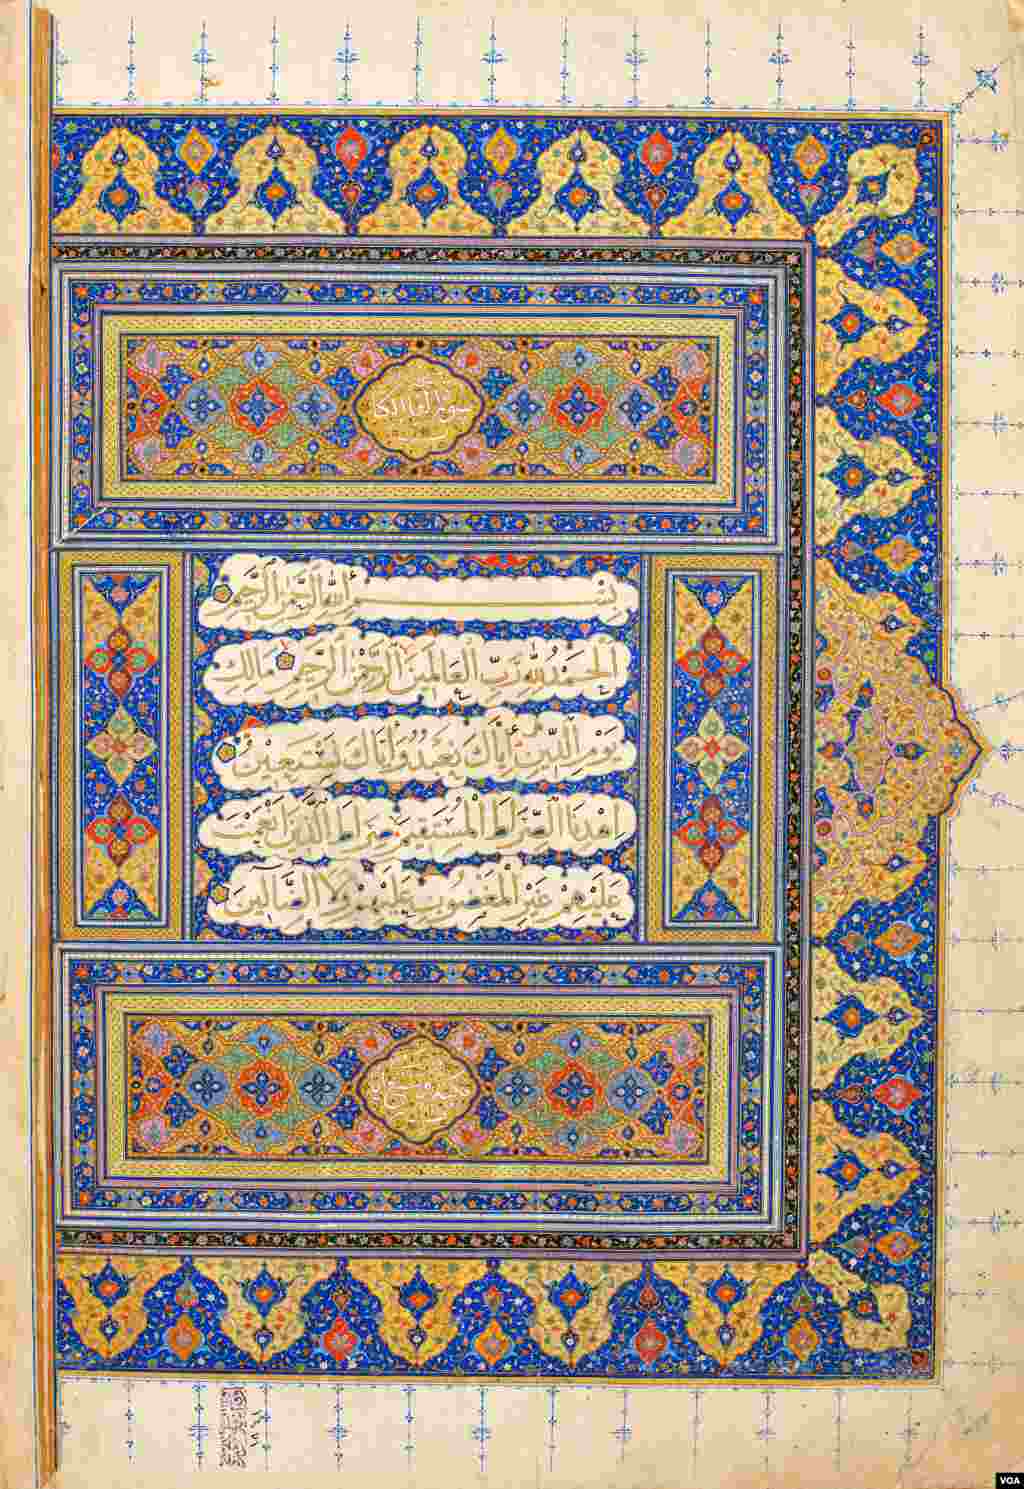 سورة الكتاب
بِسْمِ اللَّهِ الرَّحْمَٰنِ الرَّحِيمِ
الْحَمْدُ لِلَّهِ رَبِّ الْعَالَمِينَ الرَّحْمَٰنِ الرَّحِيمِ مَالِكِ
يَوْمِ الدِّينِ إِيَّاكَ نَعْبُدُ وَإِيَّاكَ نَسْتَعِينُ
اهْدِنَا الصِّرَاطَ الْمُسْتَقِيمَ صِرَاطَ الَّذِينَ أَنْعَمْتَ
عَلَيْهِمْ غَيْرِ الْمَغْضُوبِ عَلَيْهِمْ وَلَا الضَّالِّينَ
VOA